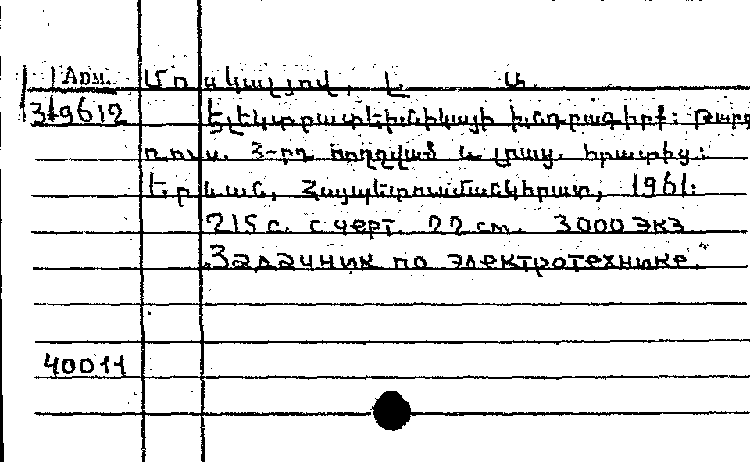 Арм.
Մոսկալյով, Լ. Ա.
3/9612
Էլեկտրատեխնիկայի խնդրագիրք: Թարգ
ռուս. 3-րդ ուղղված և լրաց. հրատից:
Երևան, Հայպետուսմանկհրատ, 1961.
215 с. с черт. 22 см. 3000 экз
"Задачник по электротехнике"
40011